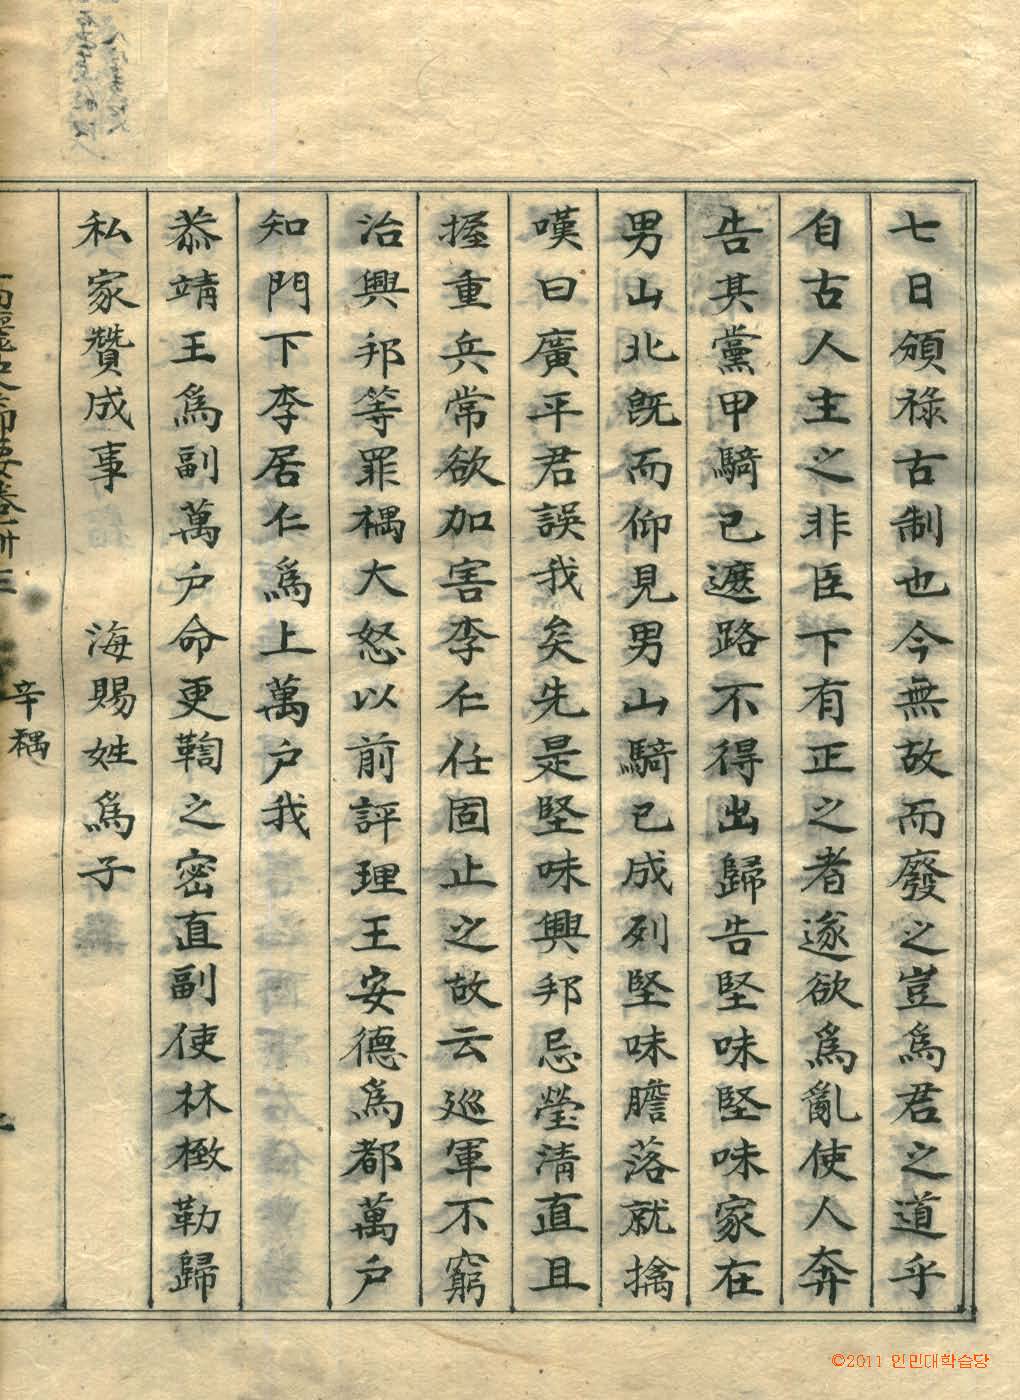 七日頒祿古制也今無故而廢之豈爲君之道乎
自古人主之非臣下有正之者遂欲爲亂使人奔
告其黨甲騎已遮路不得出歸告堅味堅味家在
男山北旣而仰見男山騎已成列堅味膽落就擒
嘆曰廣平君誤我矣先是堅味興邦忌瑩淸直且
握重兵常欲加害李仁任固止之故云巡軍不窮
治興邦等罪禑大怒以前評理王安德爲都萬户
知門下李居仁爲上萬户我
恭靖王爲副萬户命更鞫之密直副使林樬勒歸
私家贊成事 海賜姓爲子
高麗史節要卷卅三 辛禑
©2011 인민대학습당